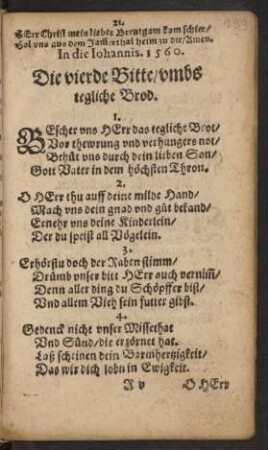 21.
HErr Christ mein lieber Breutgam kom schier/
Hol vns aus dem Jam̃erthal heim zu dir/Amen.
In die Iohannis. 1560.
Die vierde Bitte/vmbs
tegliche Brod.
1.
BEscher vns HErr das tegliche Brot/
Vor thewrung vnd verhungers not/
Behüt vns durch dein lieben Son/
Gott Vater in dem höchsten Thron.
2.
O HErr thu auff deine milde Hand/
Mach vns dein gnad vnd güt bekand/
Ernehr vns deine Kinderlein/
Der du speist all Vögelein.
3.
Erhörstu doch der Raben stimm/
Drümb vnser bitt HErr auch vernim̃/
Denn aller ding du Schöpffer bist/
Vnd allem Vieh sein futter gibst.
4.
Gedenck nicht vnser Missethat
Vnd Sünd/die erzörnet hat.
Laß scheinen dein Barmhertzigkeit/
Das wir dich lobn in Ewigkeit.
R v O HErr